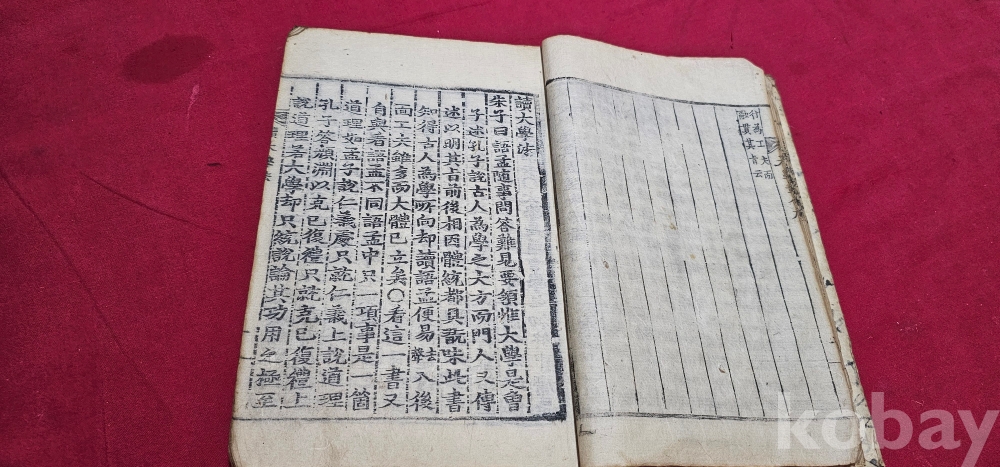 讀大學法
朱子曰語孟隨事問答難見要領惟大學是曾
子述孔子說古人為學之大方而門人又傳
述以明其旨前後相因體統都具翫味此書
知得古人為學所向却讀語孟便易去聲入後
面工夫雖多而大體已立矣○看這一書又
自與看語孟不同語孟中只一項事是一箇
道理如孟子說仁義處只就仁義上說道理
孔子答顏淵以克己復禮只就克己復禮上
說道理若大學却只統說論其功用之極至
kobay